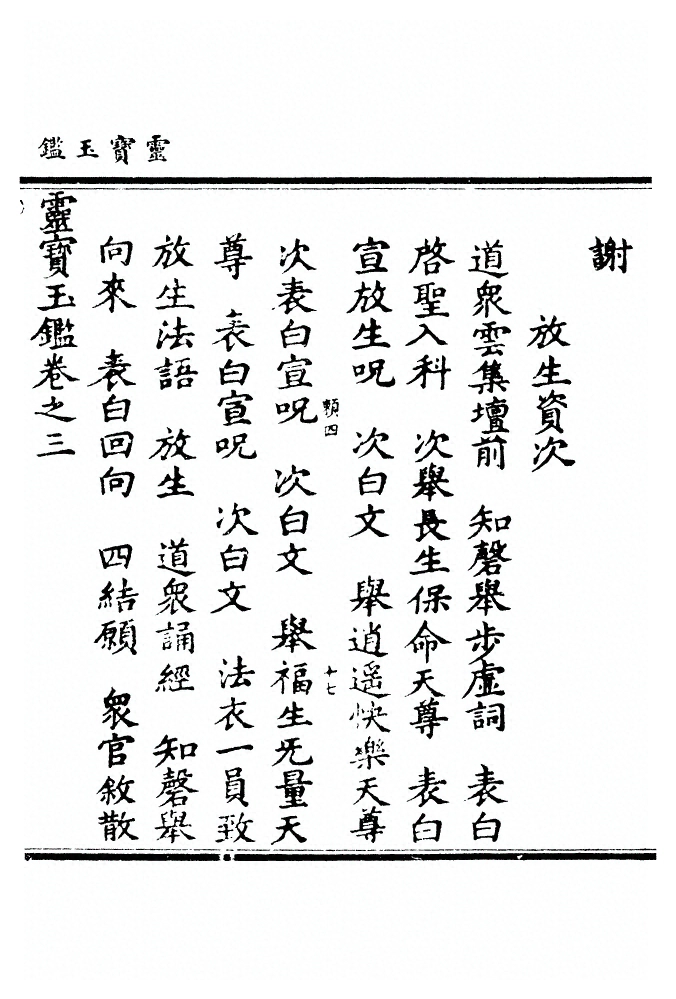 靈寶玉鑑
謝
放生資次
道衆雲集壇前　知磬舉步虛詞　表白
啓聖入科　次舉長生保命天尊　表白
宣放生呪　次白文　舉逍遥快樂天尊
頼四　十七
次表白宣呪　次白文　舉福生旡量天
尊　表白宣呪　次白文　法衣一員致
放生法語　放生　道衆誦經　知磬舉
向來　表白回向　四結願　衆官敘散
靈寶玉鑑卷之三